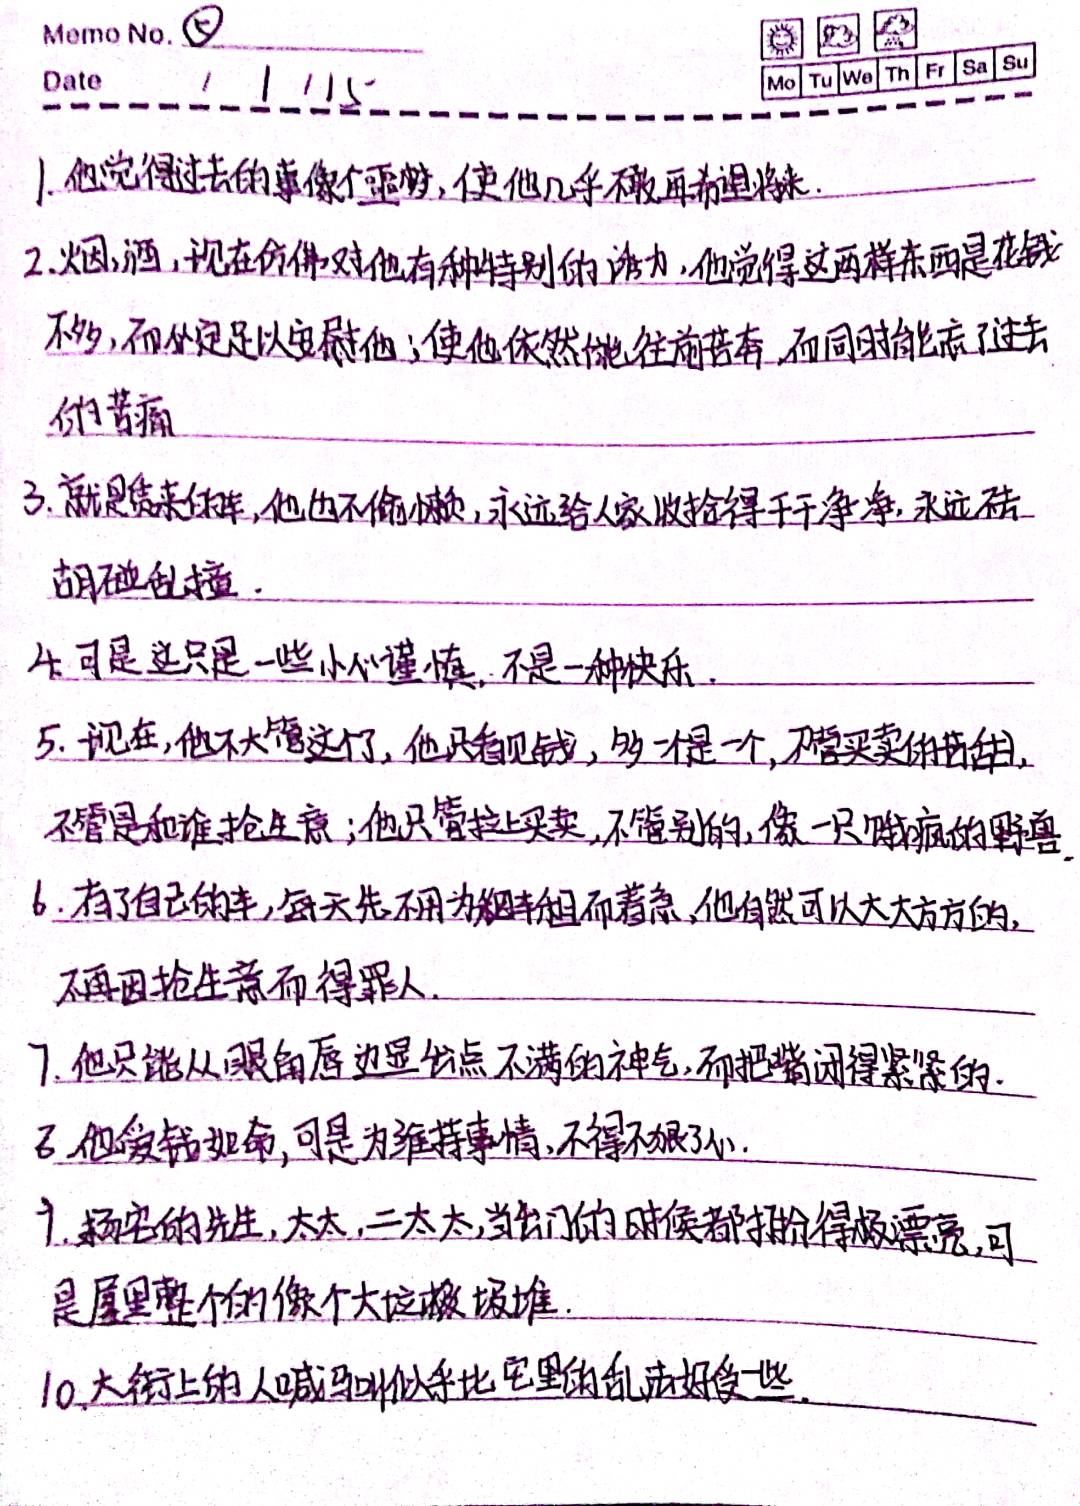 Memo No. ⑤
Date / 1 / 15
Mo Tu We Th Fr Sa Su
1. 他觉得过去的事像个噩梦,使他几乎不敢再希望将来.
2. 烟,酒,现在仿佛对他有种特别的诱力,他觉得这两样东西是花钱
不多,而必定足以安慰他;使他依然能往前苦奔,而同时能忘了过去
的苦痛
3. 就是赁来的车,他也不偷懒,永远给人家收拾得干干净净,永远不去
胡碰乱撞.
4. 可是这只是一些小心谨慎,不是一种快乐.
5. 现在,他不大管这个了,他只看见钱,多一个是一个,不管买卖的苦甜,
不管是和谁抢生意;他只管拉上买卖,不管别的,像一只饿疯的野兽.
6. 有了自己的车,每天先不用为车租而着急,他自然可以大大方方的,
不再因抢生意而得罪人.
7. 他只能从眼角唇边显出点不满的神气,而把嘴闭得紧紧的.
8. 他爱钱如命,可是为维持事情,不得不狠了心.
9. 杨宅的先生,太太,二太太,当出门的时候都打扮得极漂亮,可
是屋里整个的像个大垃圾堆.
10. 大街上的人喊马叫似乎比宅里的乱法好受一些.